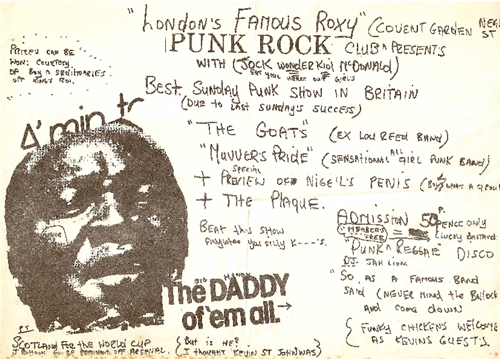 "LONDON'S FAMOUS ROXY" (COVENT GARDEN NEAL ST
PUNK ROCK CLUB PRESENTS
WITH (JOCK WONDER KID McDONALD)
BEST SUNDAY PUNK SHOW IN BRITAIN
(DUE TO LAST SUNDAYS SUCCESS)
"THE GOATS" (EX LOU REED BAND)
"MUVVER'S PRIDE" (SENSATIONAL ALL GIRL PUNK BAND)
+ SPECIAL PREVIEW OF NIGEL'S PENIS
+ THE PLAQUE.
PRIZES CAN BE
WON: COURTESY
OF BOY & SEDITIONARIES
OFF KINGS RD.
A'min tr
BEAT THIS SHOW
ANYWHERE YOU SILLY K---'S.
ADMISSION 50 P.
PENCE ONLY
"MEMBERS FREE"
LUCKY BASTARD
"PUNK N REGGAE" DISCO
D.J. JAH LION
"SO AS A FAMOUS BAND
SAID (NEVER MIND THE BOLLOCKS
AND COME DOWN
{ FUNKY CHICKENS WELCOME
AS KEVINS GUESTS. }
The DADDY
of 'em all.
SCOTLAND FOR THE WORLD CUP
ARSENAL.
{ BUT IS HE?
I THOUGHT KEVIN ST JOHN WAS }